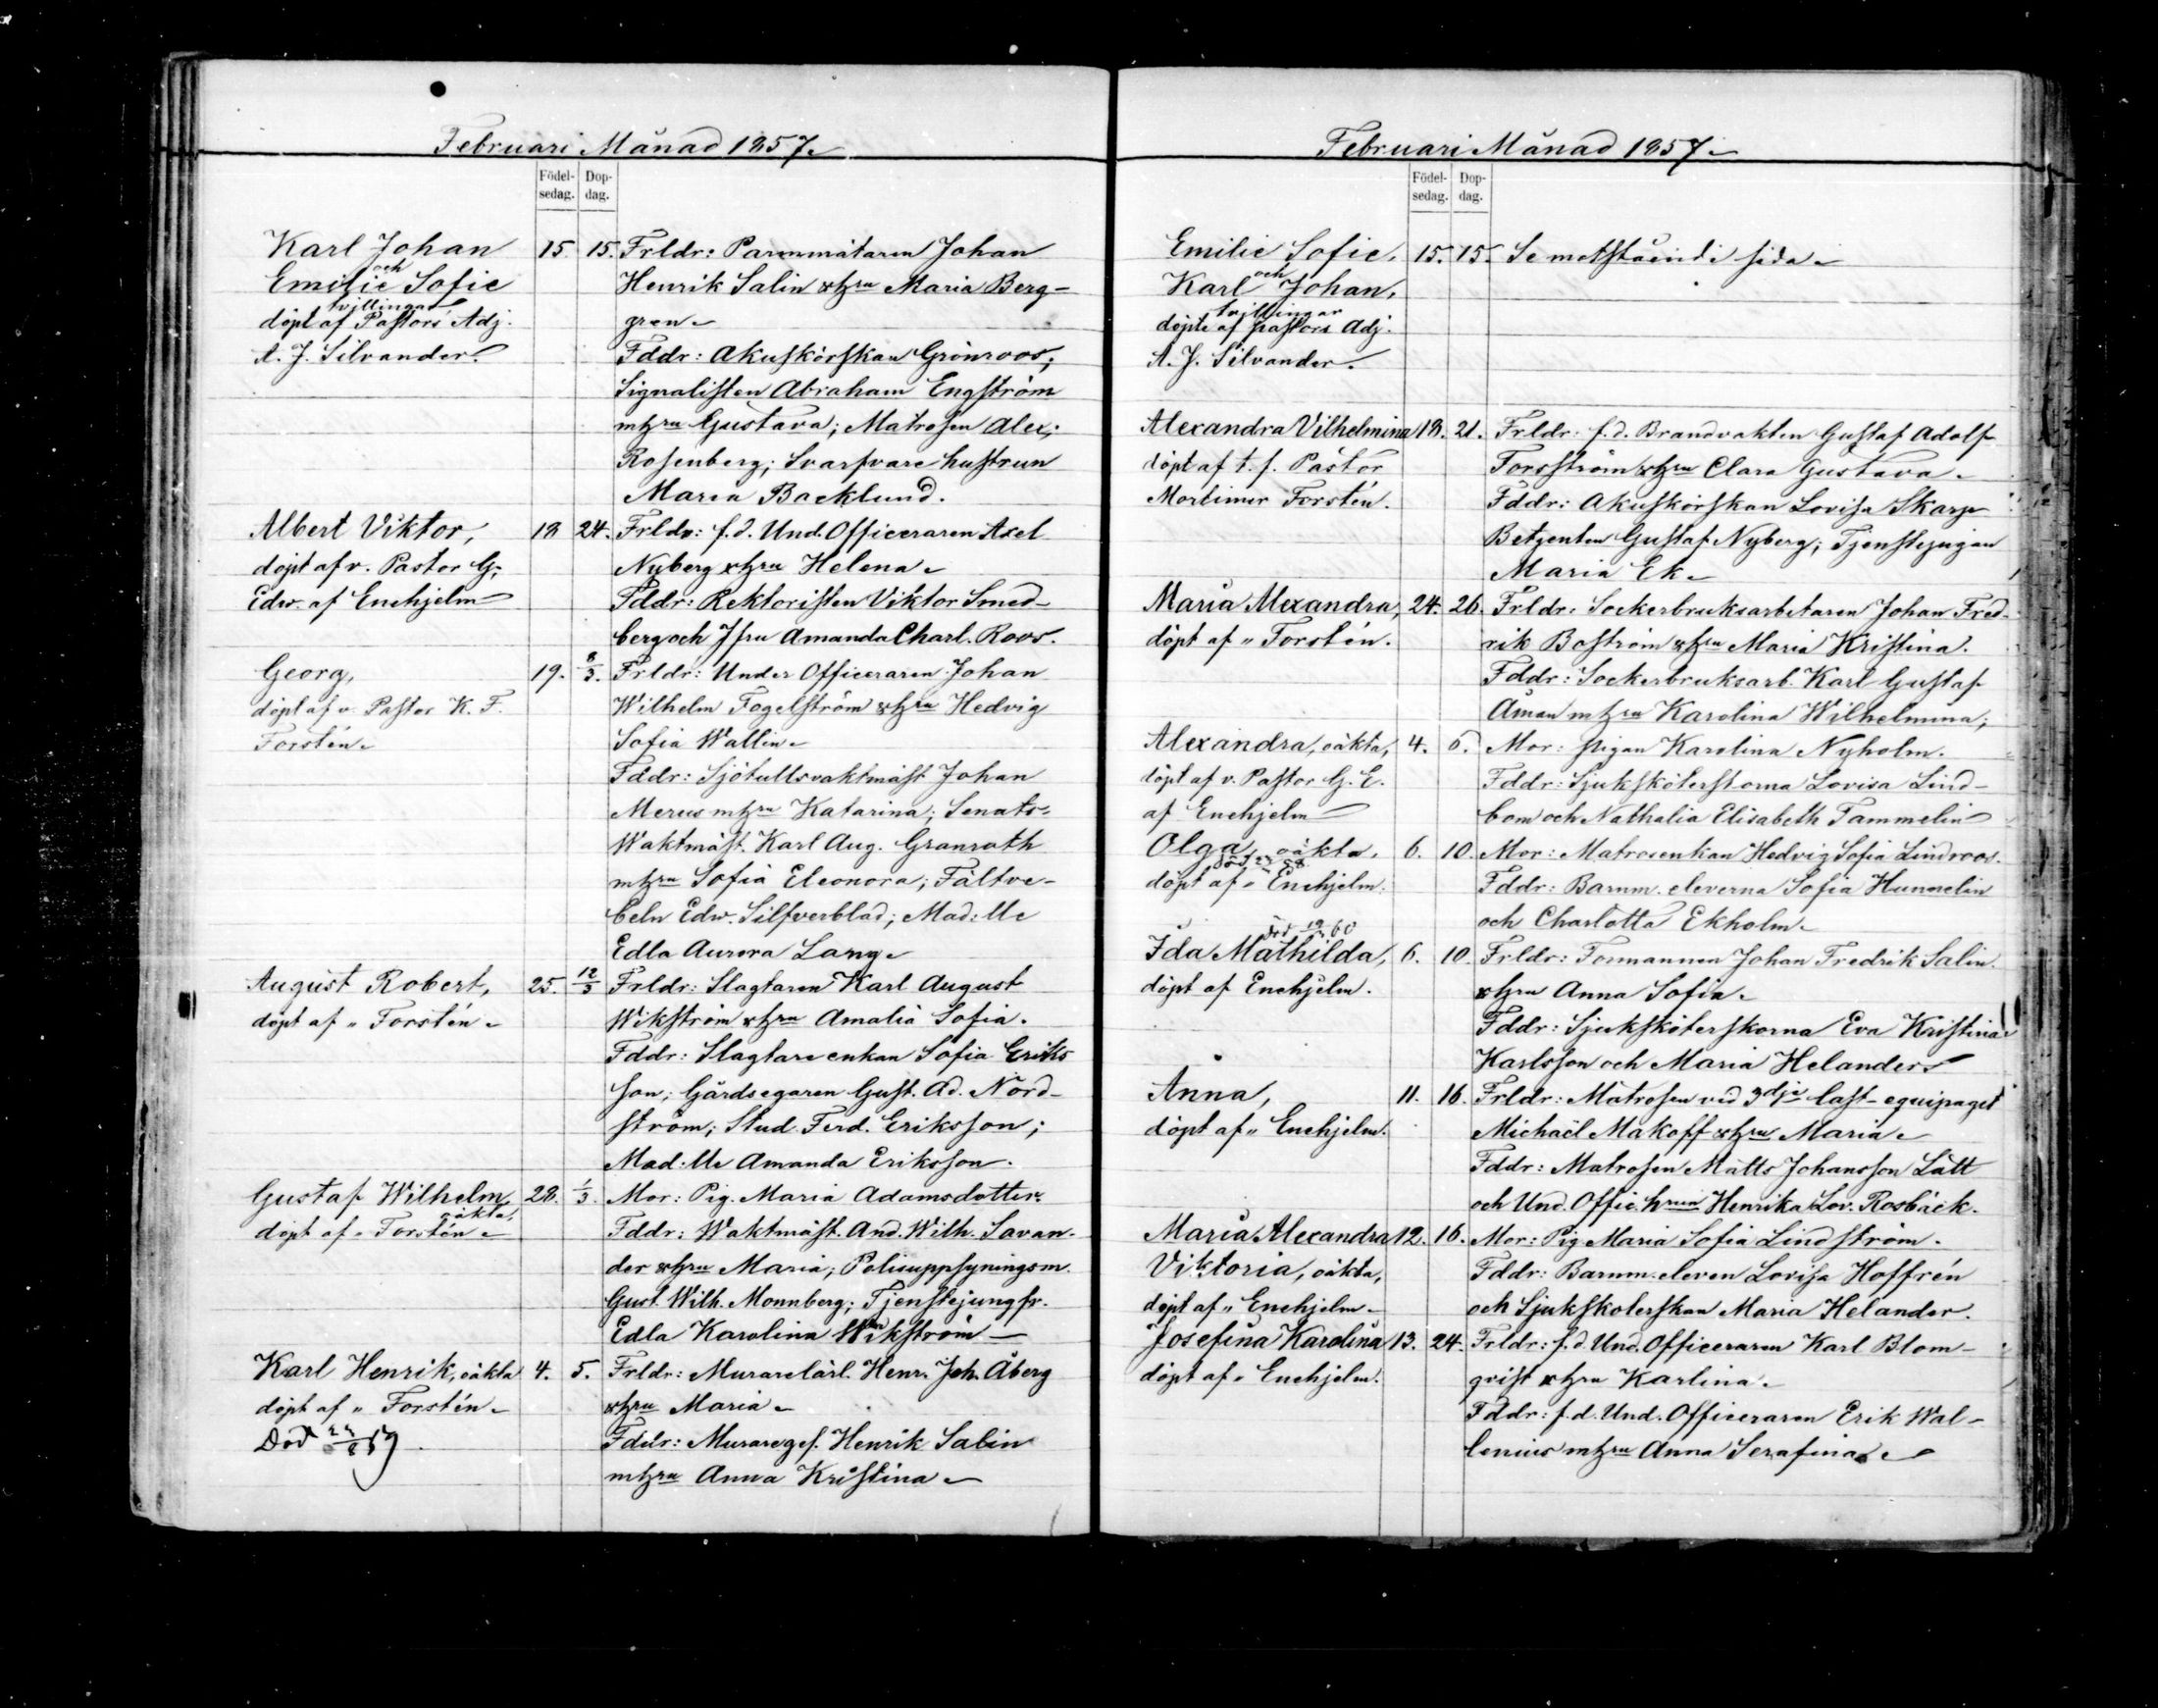 Februari Månad 1857
Födel-
sedag.
Dop-
dag.
Karl Johan 15. 15. Frldr: Parmmätaren Johan
och
Emilie Sofie Henrik Salin o. h:ru Maria Berg-
tvillingar
döpt af Pastors Adj. gren
A. J. Silvander. Fddr: Akuskörskan Grönroos;
Signalisten Abraham Engström
m. h:ru Gustava; Matrosen Alex:
Rosenberg; Svarfvare hustrun
Maria Backlund.
Albert Viktor, 18 24. Frldr: f.d. Und. Officeraren Axel
döpt af v. Pastor G. Nyberg o. h:ru Helena
Edw. af Enehjelm Fddr: Rektoristen Viktor Smed-
berg och Jfru Amanda Charl. Roos.
Georg, 19. 8/3. Frldr: Under Officeraren Johan
döpt af v. Pastor K. F. Wilhelm Fogelström o. h:ru Hedvig
Forstén Sofia Wallin
Fddr: Sjötullsvaktmäst. Johan
Merus m. h:ru Katarina; Senats-
Waktmäst. Karl Aug. Granroth
m. h:ru Sofia Eleonora; Fältve-
beln Edw. Silfverblad; Mad:lle
Edla Aurora Lang
August Robert, 25. 12/3 Frldr: Slagtaren Karl August
döpt af " Forstén Wikström o. h:ru Amalia Sofia.
Fddr: Slagtare enkan Sofia Eriks
son; Gårdsegaren Gust. Ad. Nord-
ström; Stud. Ferd. Eriksson;
Mad:lle Amanda Eriksson.
Gustaf Wilhelm, 28. 1/3. Mor: Pig. Maria Adamsdotter.
oäkta,
döpt af " Forstén Fddr: Waktmäst. And. Wilh. Savan-
der o. h:ru Maria; Polisuppsyningsm.
Gust. Wilh. Monnberg; Tjenstejungfr.
Edla Karolina Wikström
Karl Henrik, oäkta 4. 5. Frldr: Murarelärl. Henr. Joh. Åberg
döpt af " Forstén o. h:ru Maria
Död Fddr: Muraregs. Henrik Salin
m. h:ru Anna Kristina
Februari Månad 1857
Födel-
sedag.
Dop-
dag.
Emilie Sofie, 15. 15. Se motstående sida
och
Karl Johan,
tvillingar
döpte af pastors Adj.
A. J. Silvander.
Alexandra Vilhelmina 18. 21. Frldr: f.d. Brandvakten Gustaf Adolf
döpt af t. f. Pastor Forsström o. h:ru Clara Gustava
Mortimer Forstén. Fddr: Akuskörskan Lovisa Skarp
Betjenten Gustaf Nyberg; Tjenstepigan
Maria Ek
Maria Alexandra, 24. 26. Frldr: Sockerbruksarbetaren Johan Fred-
döpt af " Forstén. rik Boström o. h:ru Maria Kristina.
Fddr: Sockerbruksarb. Karl Gustaf
Åman m. h:ru Karolina Wilhelmina;
Alexandra, oäkta, 4. 6. Mor: pigan Karolina Nyholm.
döpt af v. Pastor G. E. Fddr: Sjukskötersk­orna Lovisa Lind-
af Enehjelm bom och Nathalia Elisabeth Tammelin
Olga, oäkta. 6. 10. Mor: Matrosenkan Hedvig Sofia Lindroos.
död 58
döpt af " Enehjelm. Fddr: Barnm. eleverna Sofia Hummelin
och Charlotta Ekholm
död 60
Ida Mathilda, 6. 10. Frldr: Formannen Johan Fredrik Salin.
döpt af Enehjelm. o. h:ru Anna Sofia.
Fddr: Sjuksköterskorna Eva Kristina
Karlsson och Maria Helander
Anna, 11. 16. Frldr: Matrosen vid 3dje last-equipaget
döpt af " Enehjelm. Michaël Makoff o. h:ru Maria
Fddr: Matrosen Matts Johansson Lätt
och Und. Offic. h:run Henrika Lov. Rosbäck.
Maria Alexandra 12. 16. Mor: Pig. Maria Sofia Lindström.
Viktoria, oäkta, Fddr: Barnm. eleven Lovisa Hoffrén
döpt af " Enehjelm och Sjukskoterskan Maria Helander.
Josefina Karolina 13. 24. Frldr: f.d. Und. Officeraren Karl Blom-
döpt af " Enehjelm. qvist o. h:ru Karlina
Fddr: f.d. Und. Officeraren Erik Wal-
lenius m. h:ru Anna Serafina